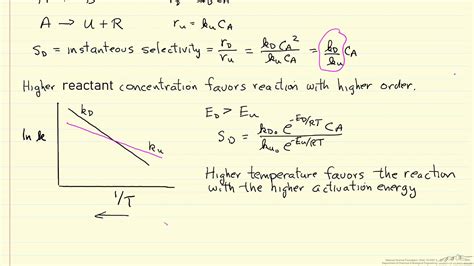 A → U + R    r_u = k_u C_A
S_D = instanteous selectivity = r_D/r_u = k_D C_A²/k_u C_A = k_D/k_u C_A
Higher reactant concentration favors reaction with higher order.
k_D
E_D > E_u
ln k
k_u
S_D = k_D₀ e^(-E_D/RT) C_A / k_u₀ e^(-E_u/RT)
1/T
Higher temperature favors the reaction
with the higher activation energy